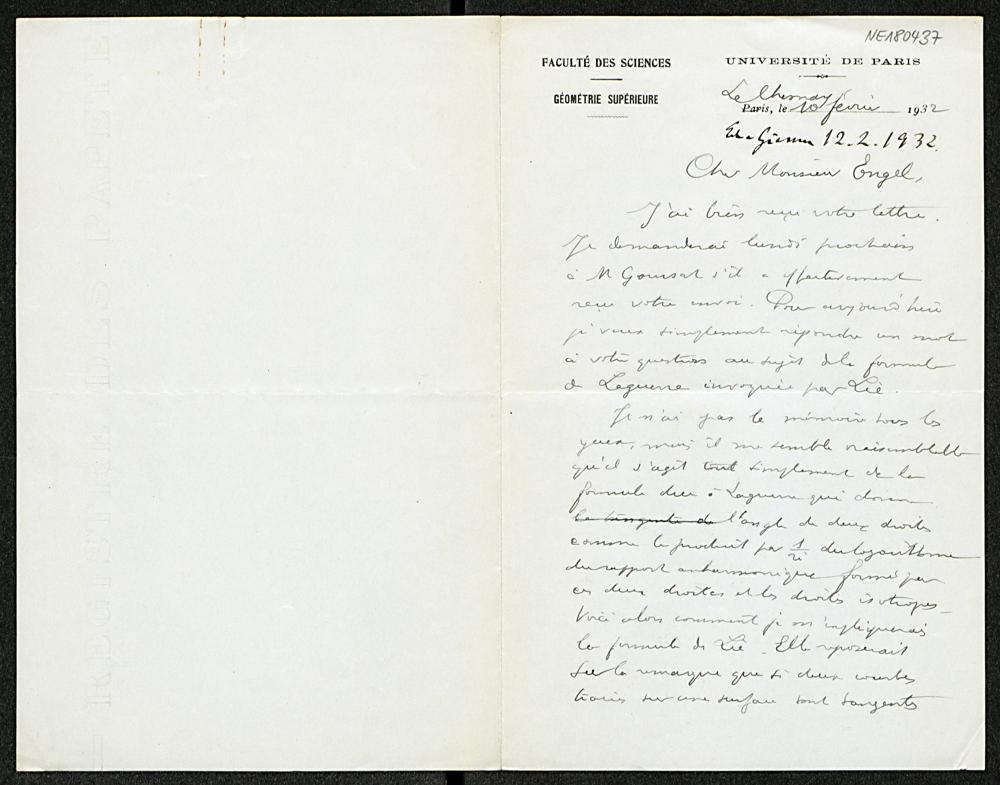 NE180437
FACULTÉ DES SCIENCES
GÉOMÉTRIE SUPÉRIEURE
UNIVERSITÉ DE PARIS
Le Chesnay
Paris, le 10 février 1932
12.2.1932.
Cher Monsieur Engel,
J'ai bien reçu votre lettre.
Je demanderai lundi prochain
à M Goursat s'il a effectivement
reçu votre envoi. Pour aujourd'hui
je veux simplement répondre un mot
à votre question au sujet de la formule
de Laguerre invoquée par Lie.
Je n'ai pas le mémoire sous les
yeux, mais il me semble vraisemblable
qu'il s'agit tout simplement de la
formule due à Laguerre qui donne
la tangente de l'angle de deux droites
comme le produit par 1/2i du logarithme
du rapport anharmonique formé par
ces deux droites et les droites isotropes.
Voici alors comment je m'expliquerais
la formule de Lie. Elle reposerait
sur la remarque que si deux courbes
tracées sur une surface sont tangentes